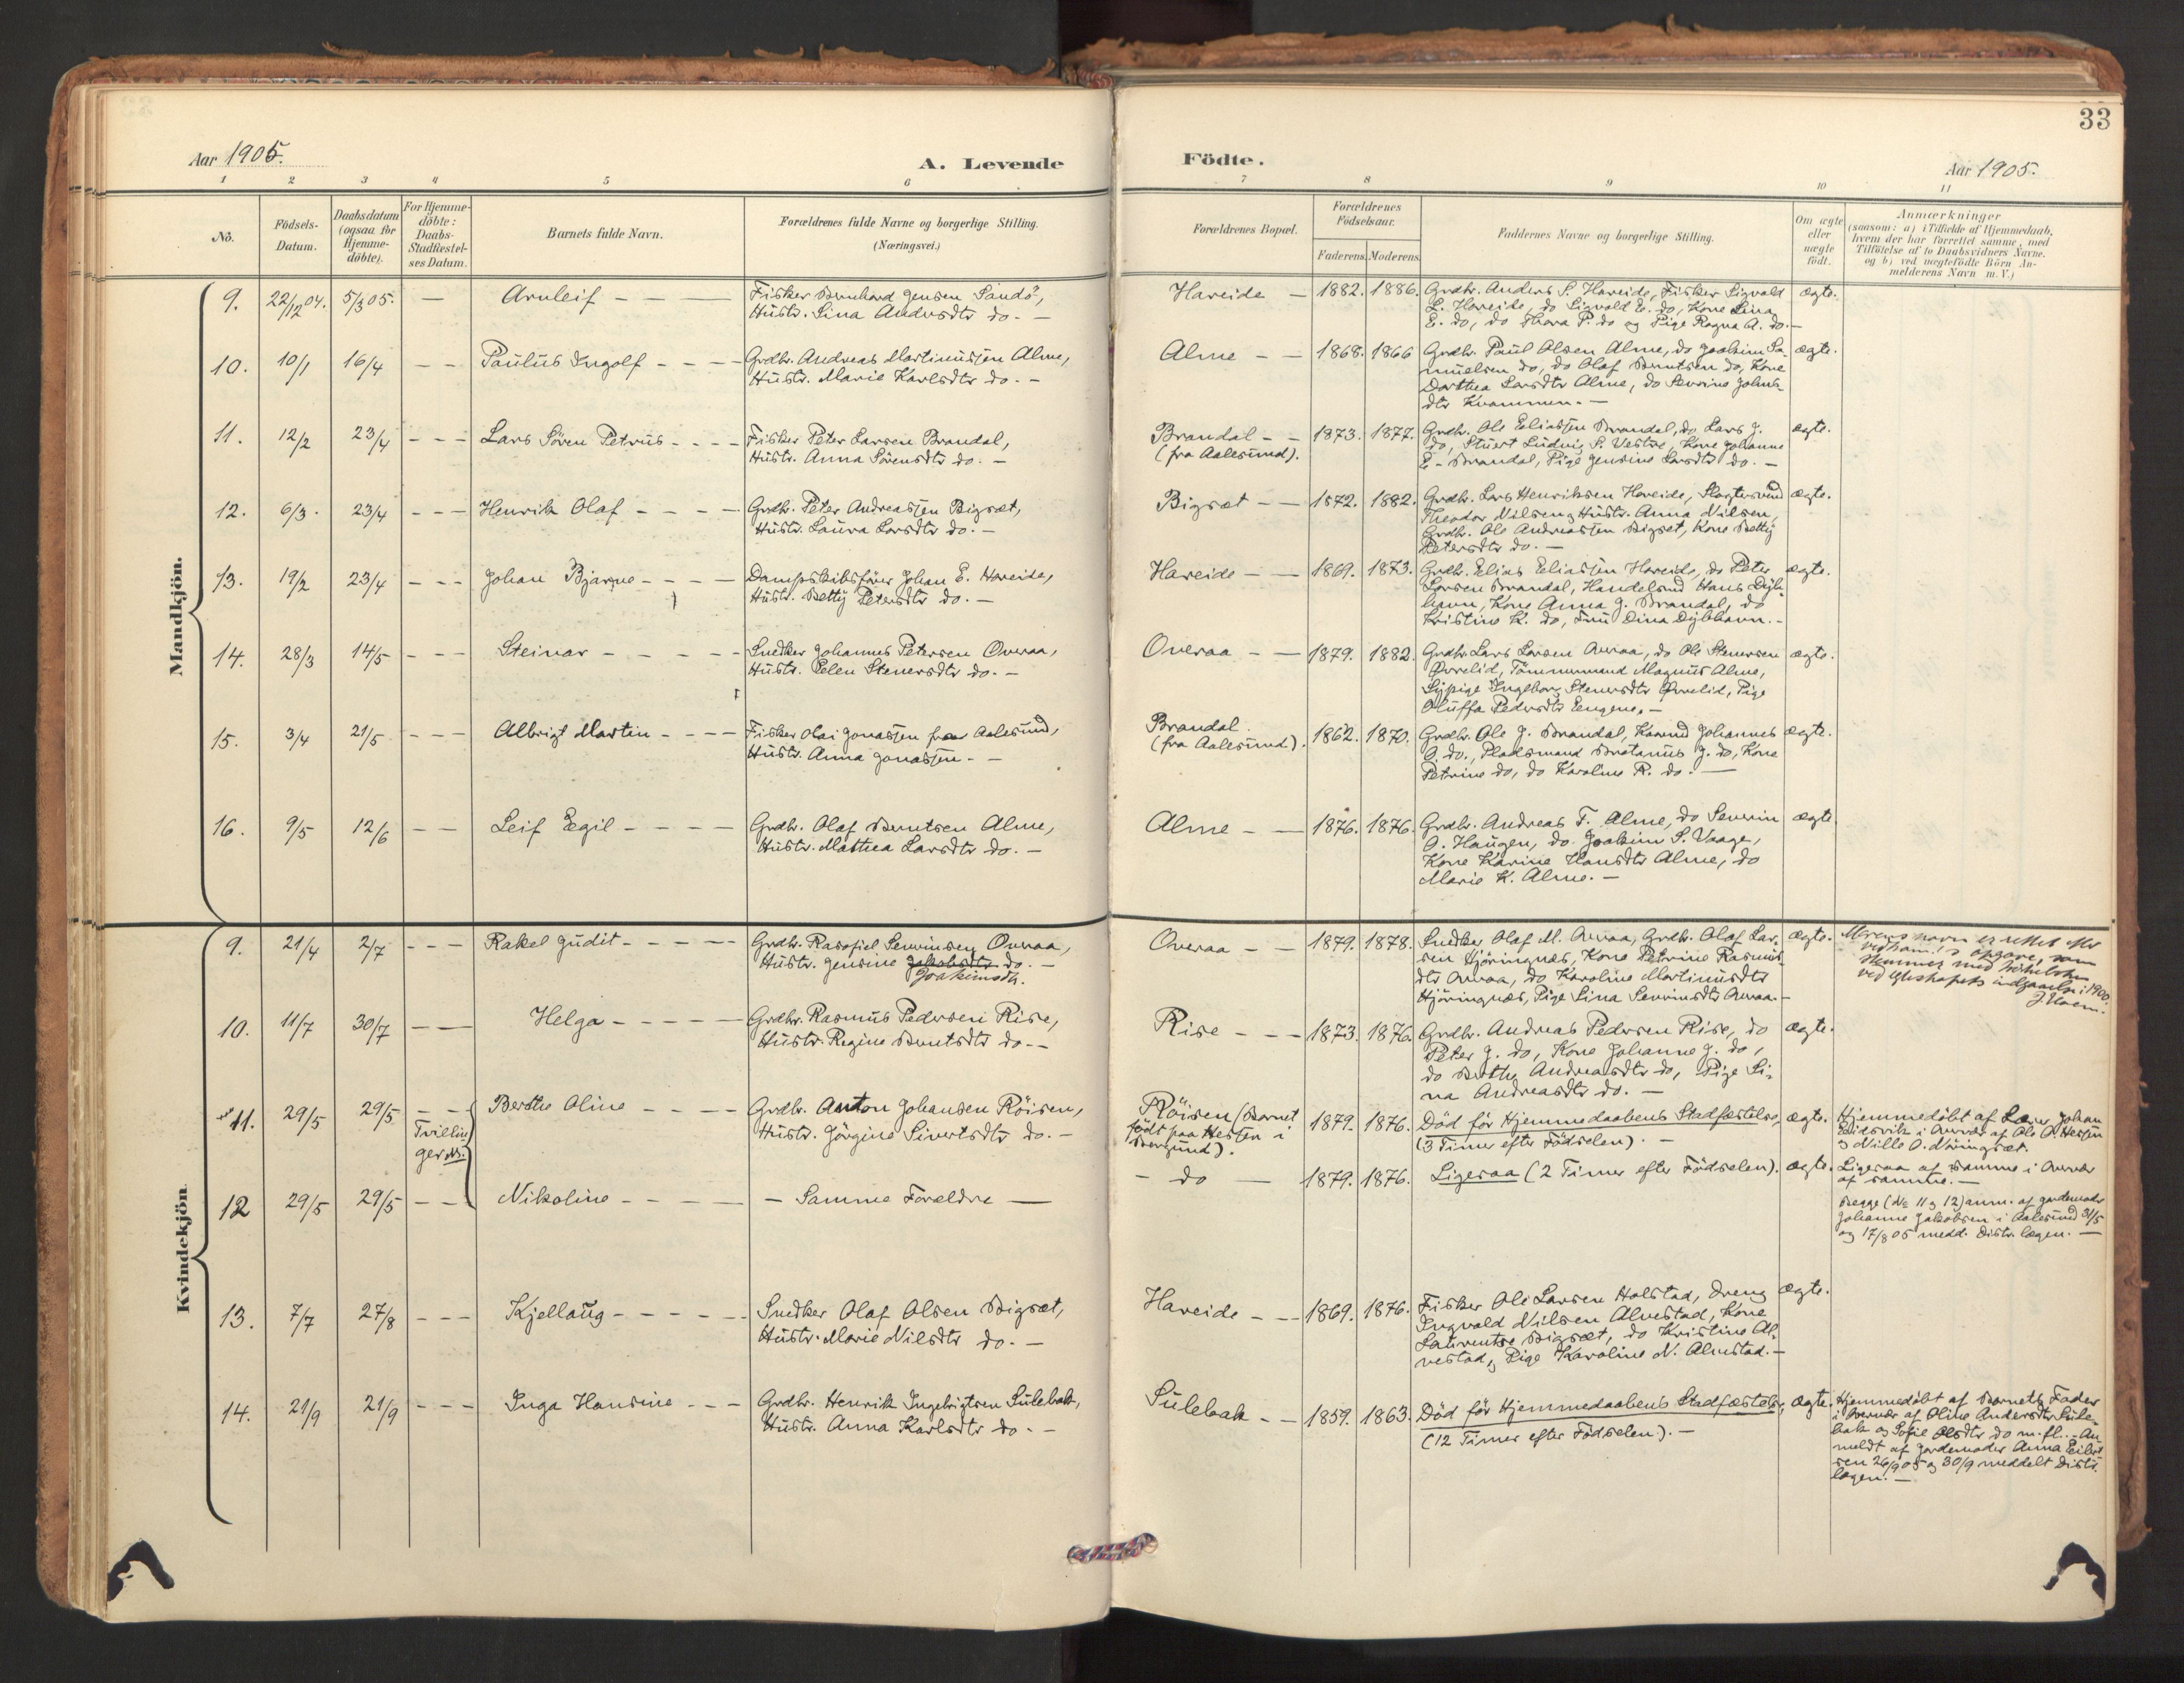 33
Aar 1905.
A. Levende
Födte.
Aar 1905.
1 2 3 4 5 6 7 8 9 10 11
No.
Födsels-Datum.
Daabsdatum (ogsaa for Hjemme-döbte).
For Hjemme-döbte: Daabs-Stadfæstel-ses Datum.
Barnets fulde Navn.
Forældrenes fulde Navne og borgerlige Stilling.
(Næringsvei.)
Forældrenes Bopæl.
Forældrenes Födselsaar.
Faderens. Moderens.
Faddernes Navne og borgerlige Stilling.
Om ægte eller uægte födt.
Anmærkninger
(saasom: a) i Tilfælde af Hjemmedaab,
hvem der har forrettet samme, med
Tilföielse af to Daabsvidners Navne.
og b) ved uægtefödte Börn An-
melderens Navn m. V.)
Mandkjön.
9. 22/12 04. 5/3 05. — Arnleif - - - Fisker Bernhard Jensen Sandö,
Hustr. Lina Andersdtr do. -
Hareide - 1882. 1886. Grdbr. Anders S. Hareide, Fisker Sigvald
L. Hareide, do Sigvald E. do, Kone Lina
E. do, do Thora P. do og Pige Ragna A. do. -
ægte.
10. 10/1 16/4 - - Paulus Ingolf - - - Grdbr. Andreas Martinussen Alme,
Hustr. Marie Karlsdtr do. -
Alme - - 1868. 1866 Grdbr. Paul Olsen Alme, do Joakim Sa-
muelsen do, do Olaf Berntsen do, Kone
Dorthea Larsdtr Alme, do Severine Johns-
dtr Kvammen. -
ægte.
11. 12/2 23/4 - - - Lars Sören Petrus - - - Fisker Peter Larsen Brandal,
Hustr. Anna Sörensdtr do. -
Brandal - -
(fra Aalesund).
1873. 1877. Grdbr. Ole Eliassen Brandal, do Lars J.
do, Stuert Ludvig S. Vestre, Kone Johanne
E. Brandal, Pige Jensine Larsdtr do. -
ægte.
12. 6/3. 23/4 - - - Henrik Olaf - - - - Grdbr. Peter Andreassen Bigset,
Hustr. Laura Larsdtr do. -
Bigset - - 1872. 1882. Grdbr. Lars Henriksen Hareide, Slagtersvend
Theodor Nilsen og Hustr. Anna Nilsen,
Grdbr. Ole Andreassen Bigset, Kone Betty
Petersdtr do. -
ægte.
13. 19/2 23/4 - - - Johan Bjarne - - - - Dampskibsförer Johan E. Hareide,
Hustr. Betty Petersdtr do. -
Hareide - - 1869. 1873. Grdbr. Elias Eliassen Hareide, do Peter
Larsen Brandal, Handelsmd Hans Dyb-
havn, Kone Anna J. Brandal, do
Kristine K. do, Fru Dina Dybhavn. -
ægte.
14. 28/3 14/5 - - - Steinar - - - - - Snedker Johannes Petersen Overaa,
Hustr. Elen Stenersdtr do. -
Overaa - - 1879. 1882. Grdbr Lars Larsen Overaa, do Ole Stenersen
Øvrelid, Tömmermand Magnus Alme,
Sypige Ingeborg Stenersdtr Øvrelid, Pige
Oluffa Pedersdtr Engene. -
ægte.
15. 3/4 21/5 - - - Albrigt Martin - - - - Fisker Olai Jonassen fra Aalesund,
Hustr. Anna Jonassen - -
Brandal.
(fra Aalesund).
1862. 1870. Grdbr. Ole J. Brandal, Kaarmd Johannes
O. do., Pladsmand Bertanus J. do, Kone
Petrine do, do Karoline R. do. -
ægte.
16. 9/5 12/6 - - Leif Egil - - - - Grdbr. Olaf Berntsen Alme,
Hustr. Mathea Larsdtr do. -
Alme - - 1876. 1876. Grdbr. Andreas T. Alme, do Severin
O. Haugen, do Joakim S. Vaage,
Kone Karine Hansdtr Alme, do
Marie K. Alme. -
ægte
Kvindekjön.
9. 21/4 2/7 - - - Rakel Judit - - - - - Grdbr. Rasofiel Severinsen Overaa,
Hustr. Jensine Jakobsdtr do. -
Joakimsdtr.
Overaa - - 1879. 1878. Snedker Olaf M. Overaa, Grdbr. Olaf Lar-
sen Hjöringnæs, Kone Petrine Rasmus-
dtr Overaa, do Karoline Martinusdtr
Hjöringnæs, Pige Lina Severinsdtr Overaa. -
ægte. Morens navn er rettet efter
opgave, som
stemmer med
ved ægteskapets indgaaelse i 1900.
10. 11/7 30/7 - - Helga - - - - - Grdbr. Rasmus Pedersen Rise,
Hustr. Regine Berntsdtr do. -
Rise - - - 1873. 1876. Grdbr. Andreas Pedersen Rise, do
Peter J. do, Kone Johanne J. do,
do Berthe Andreasdtr do, Pige Li-
na Andreasdtr do. -
ægte.
11. 29/5 29/5 - - Berthe Oline - - - - Grdbr. Anton Johansen Röisen,
Hustr. Jörgine Sivertsdtr do. -
Tvillin
ger
Röisen (Barnet
födt paa Hessen i
Borgund).
1879. 1876. Död för Hjemmedaabens Stadfæstelse,
(3 Timer efter Födselen). -
ægte. Hjemmedöbt af Lærer Johan
Eidsvik i Overvær af Ole O. Hessen
og Nille O. Nöringset.
12 29/5 29/5 - - Nikoline - - - - - Samme Forældre -
- do - 1879. 1876. Ligesaa (2 Timer efter Födselen). ægte. Ligesaa af samme i Overvær
af samme. -
Begge (No 11 og 12) anm. af gordemoder
Johanne Jakobsen i Aalesund 31/5
og 17/8 05 medd. Distr. lægen. -
13. 7/7 27/8 - - - Kjellaug - - - - - Snedker Olaf Olsen Bigset,
Hustr. Marie Nilsdtr do. -
Hareide - - 1869. 1876. Fisker Ole Larsen Holstad, Dreng
Ingvald Nilsen Alvestad, Kone
Laurentse Bigset, do Kristine Al-
vestad, Pige Karoline N. Alvestad. -
ægte.
14. 21/9 21/9 - - - Inga Hansine - - - Grdbr. Henrik Ingebrigtsen Sulebak,
Hustr. Anna Karlsdtr do. -
Sulebak - - 1859. 1863. Död för Hjemmedaabens Stadfæstelse,
(12 Timer efter Födselen). -
ægte. Hjemmedöbt af Barnets Fader
i Overvær af Oline Andersdtr Sule-
bak og Sofie Olsdtr do m. fl. - An-
meldt af gordemoder Anna Eilert
sen 26/9 05 og 30/9 meddelt Distr.
lægen. -